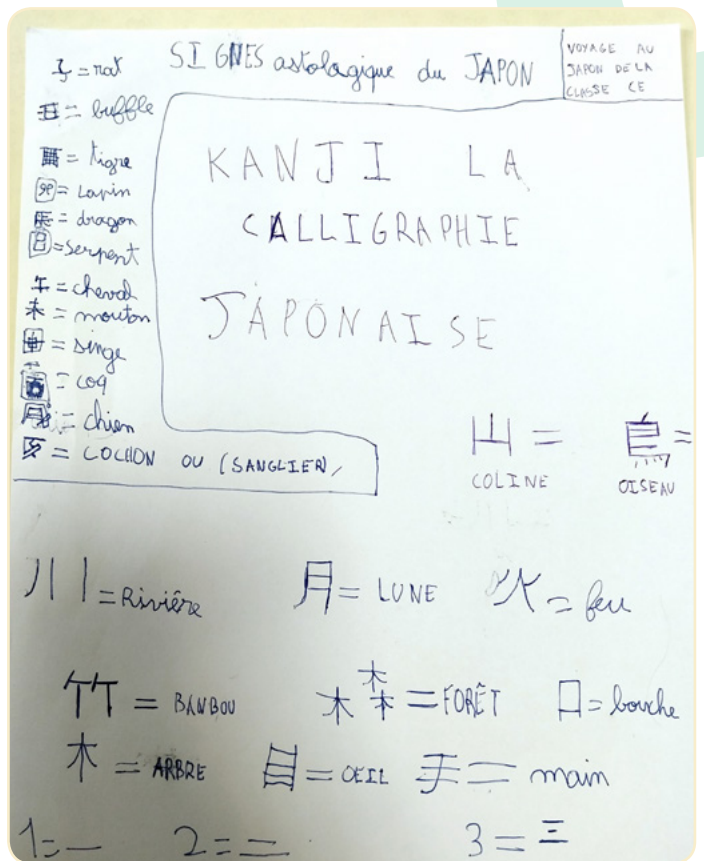 SIGNES astologique du JAPON
VOYAGE AU
JAPON DE LA
CLASSE CE
子 = rat
丑 = buffle
= tigre
卯 = Lapin
辰 = dragon
巳 = serpent
午 = cheval
未 = mouton
申 = singe
酉 = coq
= chien
= COCHON OU (SANGLIER),
KANJI LA
CALLIGRAPHIE
JAPONAISE
山 =
COLINE
鳥 =
OISEAU
川 = Rivière
月 = LUNE
火 = feu
竹 = BANBOU
森 = FORÊT
口 = bouche
木 = ARBRE
目 = OEIL
手 = main
1 = 一
2 = 二
3 = 三